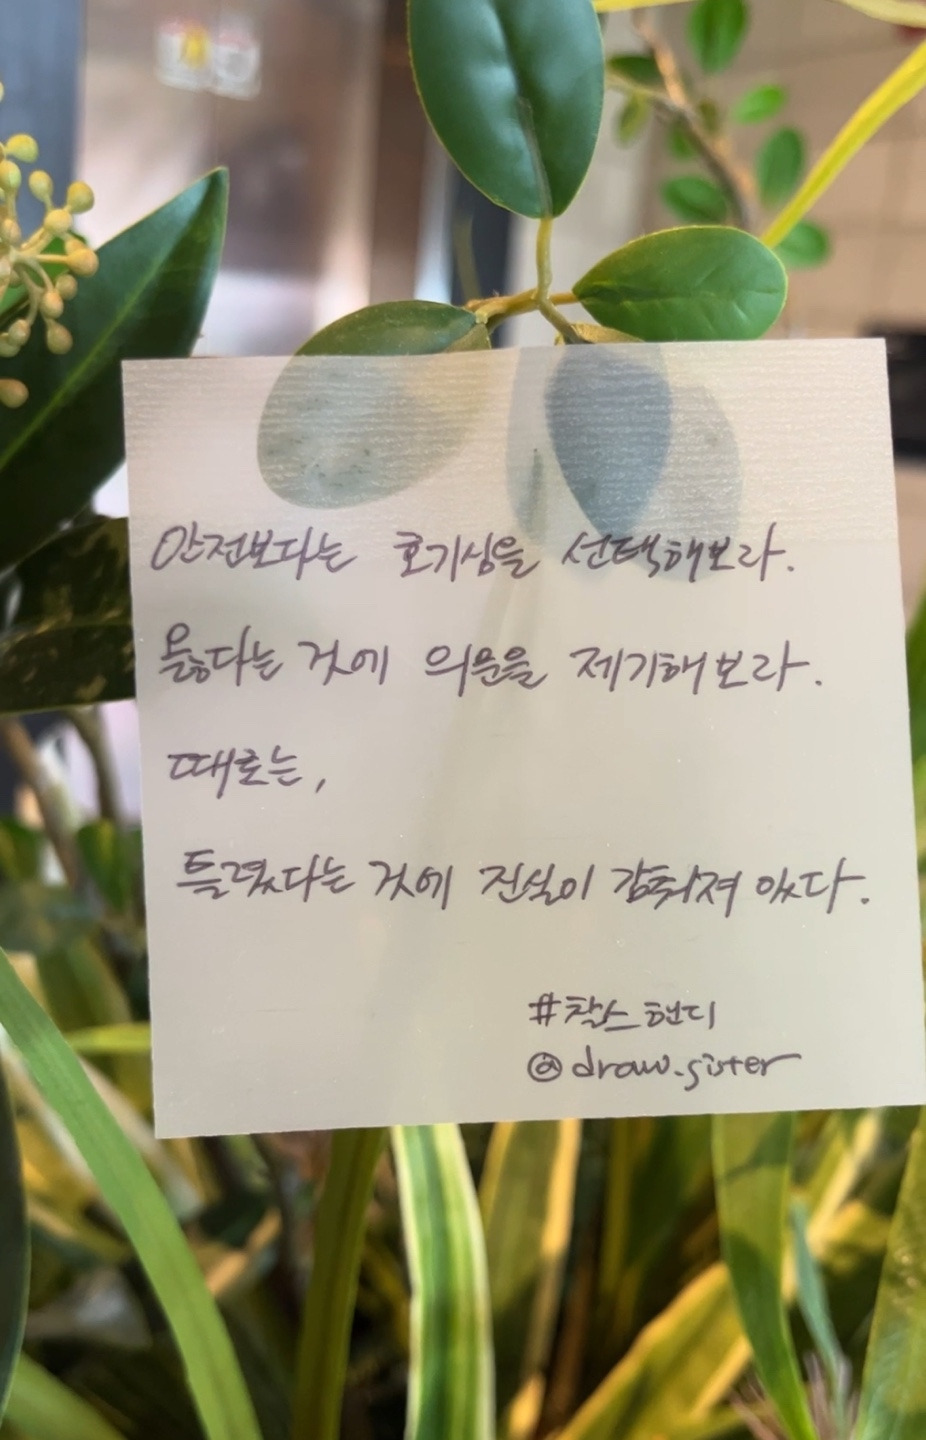 안전보다는 호기심을 선택해보라.
옳다는 것에 의문을 제기해보라.
때로는,
틀렸다는 것에 진실이 감춰져 있다.
#찰스 핸디
@draw.sister